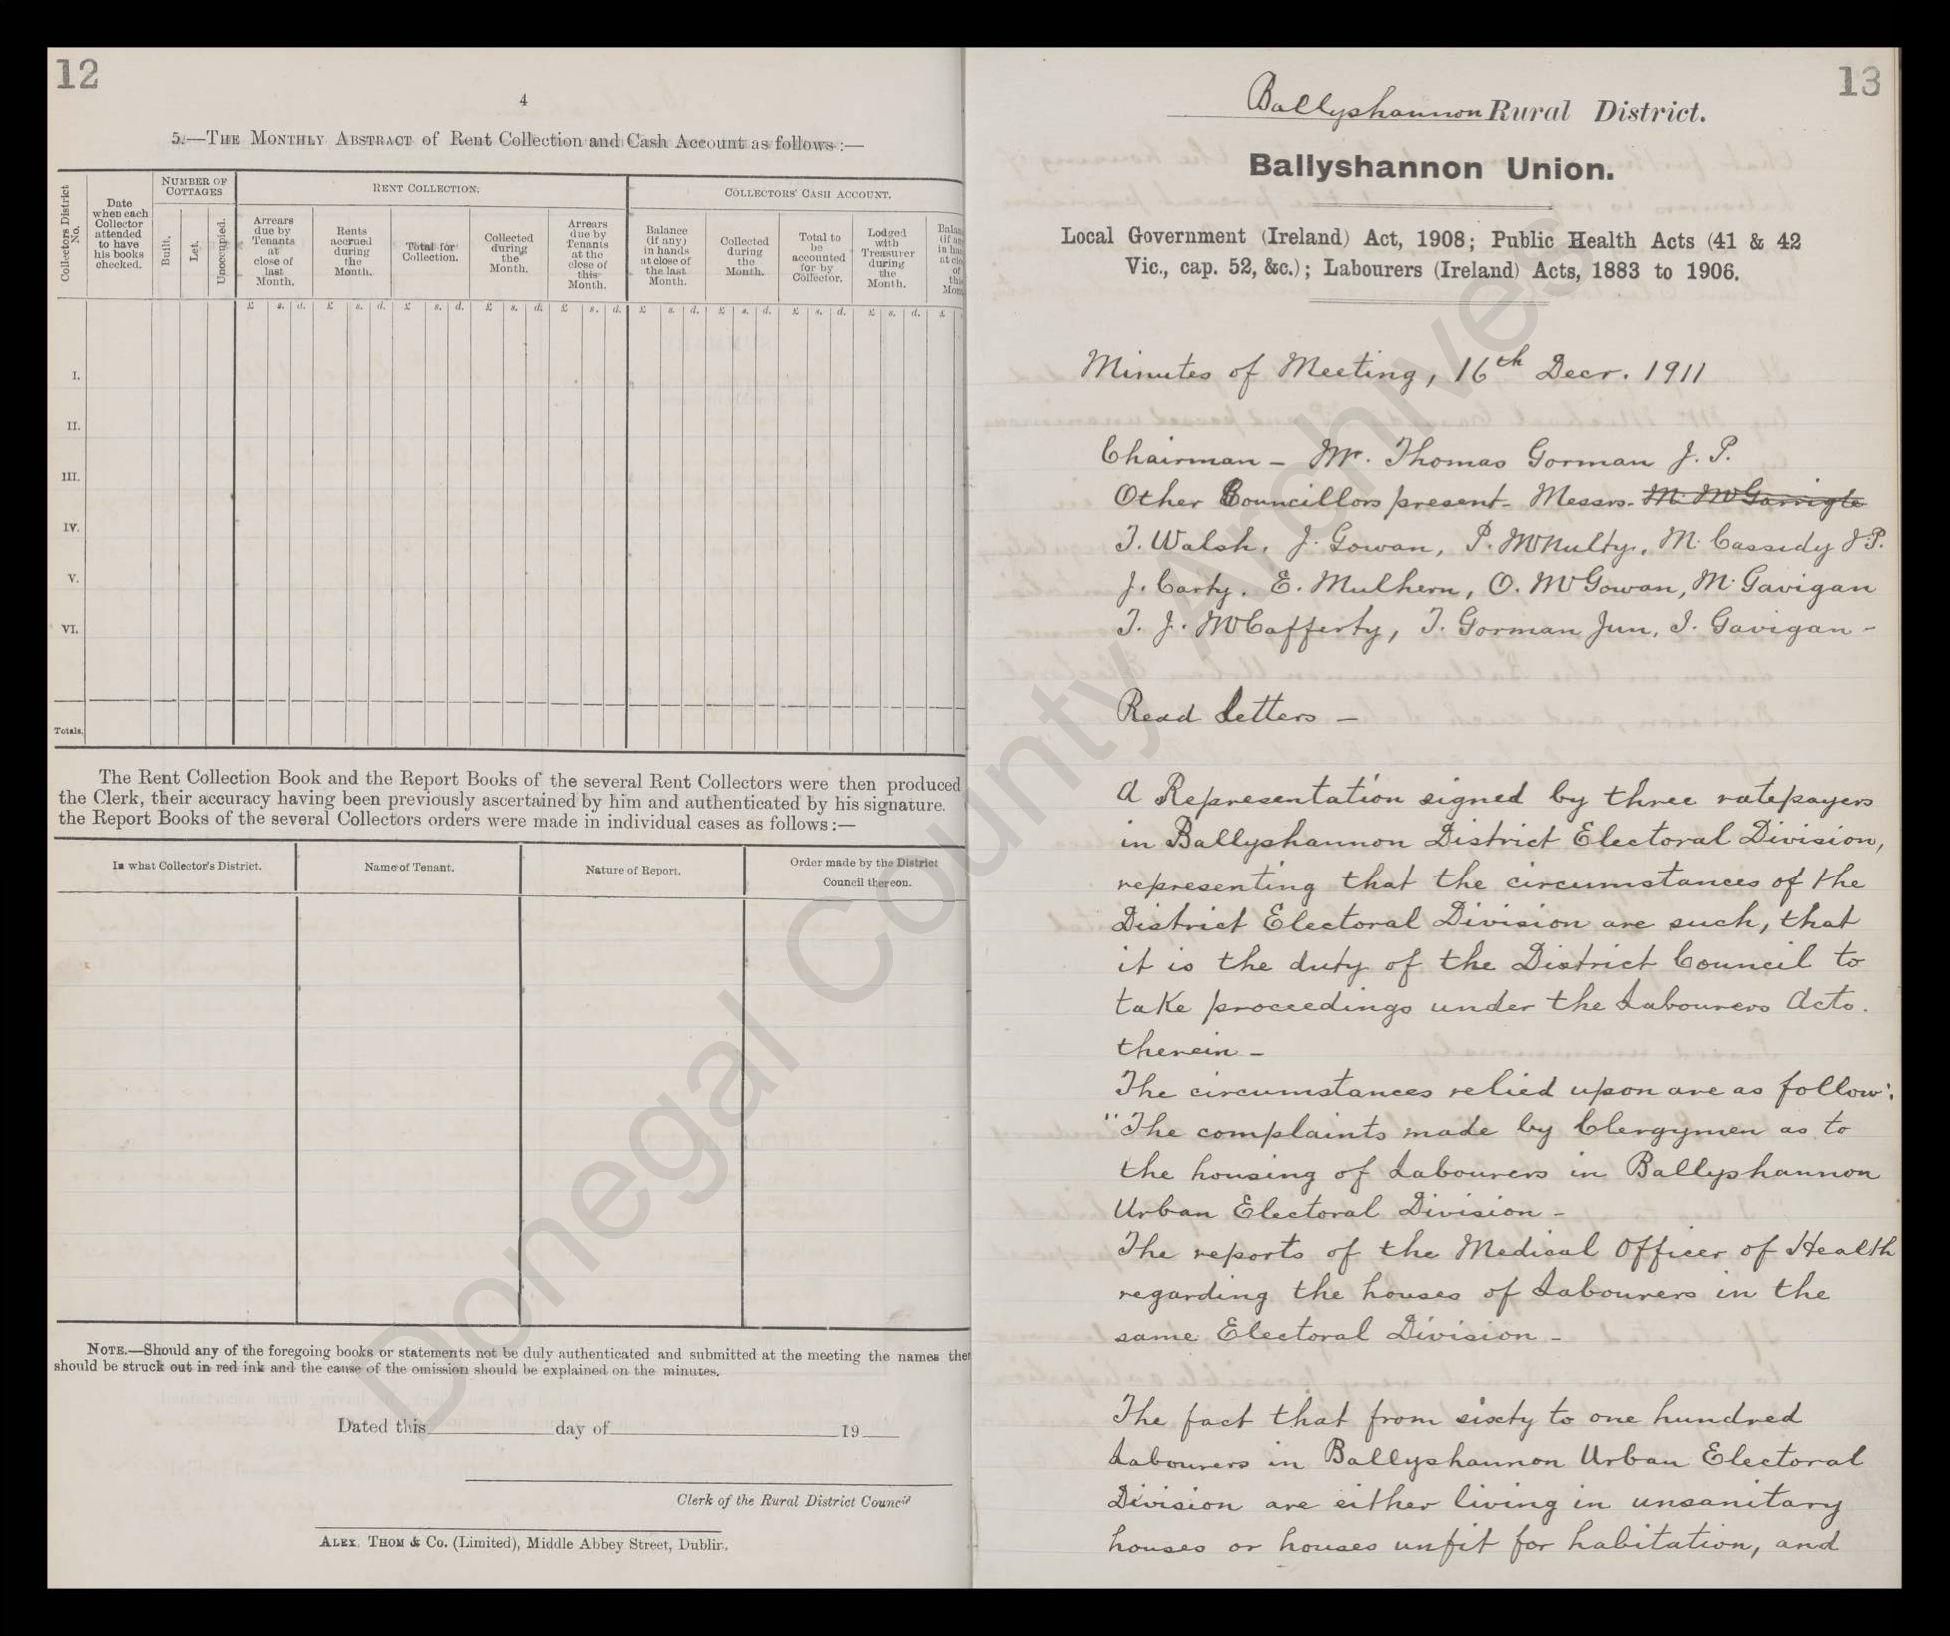 12
4
5.—The Monthly Abstract of Rent Collection and Cash Account as follows :—
Collectors District No.
Date when each Collector attended to have his books checked.
Number of Cottages
Built.
Let.
Unoccupied.
Rent Collection.
Arrears due by Tenants at close of last Month.
Rents accrued during the Month.
Total for Collection.
Collected during the Month.
Arrears due by Tenants at the close of this Month.
Collectors' Cash Account.
Balance (if any) in hands at close of the last Month.
Collected during the Month.
Total to be accounted for by Collector.
Lodged with Treasurer during the Month.
£ s. d. £ s. d. £ s. d. £ s. d. £ s. d. £ s. d. £ s. d. £ s. d. £ s. d. £
I.
II.
III.
IV.
V.
VI.
Totals.
The Rent Collection Book and the Report Books of the several Rent Collectors were then produced
the Clerk, their accuracy having been previously ascertained by him and authenticated by his signature.
the Report Books of the several Collectors orders were made in individual cases as follows :—
In what Collector's District.
Name of Tenant.
Nature of Report.
Order made by the District
Council thereon.
Note.—Should any of the foregoing books or statements not be duly authenticated and submitted at the meeting the names
should be struck out in red ink and the cause of the omission should be explained on the minutes.
Dated this day of 19
Clerk of the Rural District Council
Alex. Thom & Co. (Limited), Middle Abbey Street, Dublin.
13
Ballyshannon Rural District.
Ballyshannon Union.
Local Government (Ireland) Act, 1908; Public Health Acts (41 & 42
Vic., cap. 52, &c.); Labourers (Ireland) Acts, 1883 to 1906.
Minutes of Meeting, 16th Decr. 1911
Chairman - Mr. Thomas Gorman J. P.
Other Councillors present - Messrs. M. McGarrigle
T. Walsh, J. Gowan, P. McNulty, M. Cassidy J.P.
J. Carty, E. Mulhern, O. McGowan, M. Gavigan
T. J. McCafferty, T. Gorman Jun, J. Gavigan -
Read Letters -
A Representation signed by three ratepayers
in Ballyshannon District Electoral Division,
representing that the circumstances of the
District Electoral Division are such, that
it is the duty of the District Council to
take proceedings under the Labourers Acts.
therein -
The circumstances relied upon are as follow:
"The complaints made by Clergymen as to
the housing of Labourers in Ballyshannon
Urban Electoral Division -
The reports of the Medical Officer of Health
regarding the houses of Labourers in the
same Electoral Division -
The fact that from sixty to one hundred
Labourers in Ballyshannon Urban Electoral
Division are either living in unsanitary
houses or houses unfit for habitation, and
Donegal County Archives